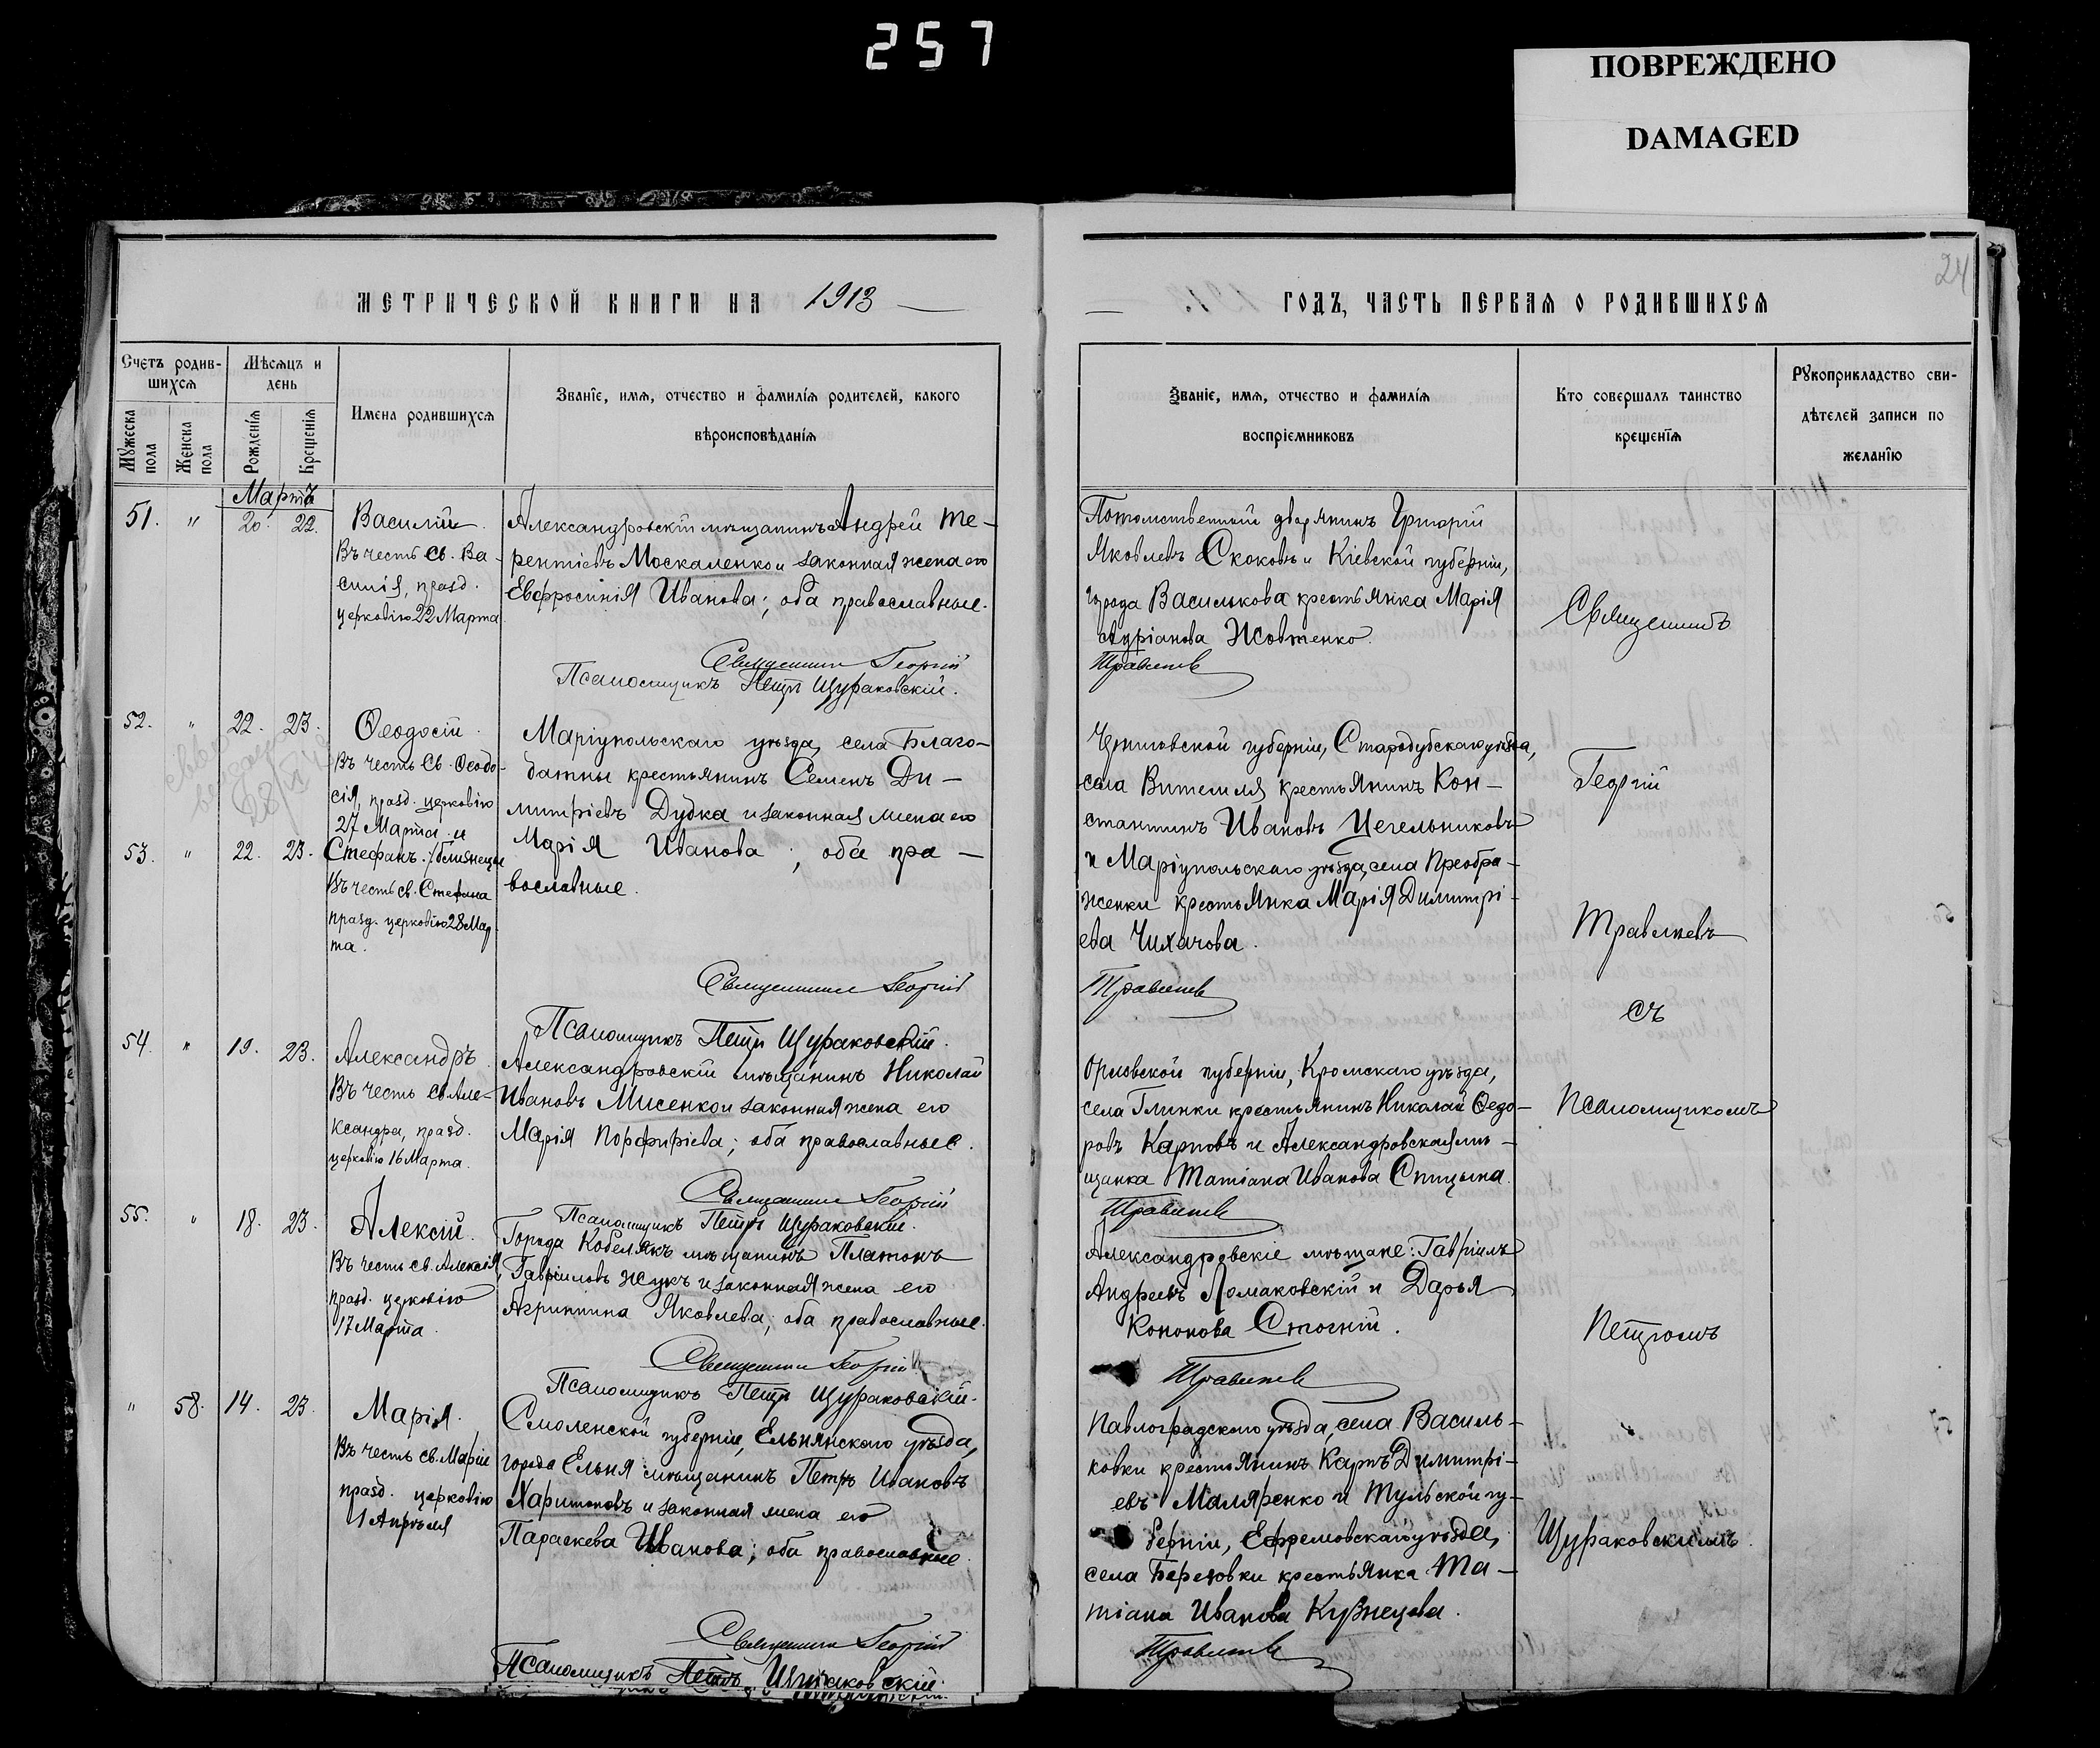 257
ПОВРЕЖДЕНО
DAMAGED
24
МЕТРИЧЕСКОЙ КНИГИ НА 1913
ГОДЪ, ЧАСТЬ ПЕРВАЯ О РОДИВШИХСЯ
Счетъ родив-
шихся
Мужеска пола
Женска пола
Мѣсяцъ и
день
Рожденія
Крещенія
Имена родившихся
Званіе, имя, отчество и фамилія родителей, какого
вѣроисповѣданія
Званіе, имя, отчество и фамилія
воспріемниковъ
Кто совершалъ таинство
крещенія
Рукоприкладство сви-
дѣтелей записи по
желанію
Мартъ
51. " 20. 22.
Василій.
Въ честь св. Ва-
силія, празд.
церковію 22 Марта.
Александровскій мѣщанинъ Андрей Те-
рентіевъ Москаленко и законная жена его
Евфросинія Иванова; оба православные.
Священникъ Георгій
Псаломщикъ Петръ Щураковскій.
Потомственный дворянинъ Григорій
Яковлевъ Скоковъ и Кіевской губерніи,
города Василькова крестьянка Марія
Адріанова Жовтенко.
Травлевъ
52. " 22. 23.
Ѳеодосій.
Въ честь св. Ѳеодо-
сія, празд. церковію
27 Марта и
53. " 22. 23.
Стефанъ. /близнецы
Въ честь св. Стефана
празд. церковію 28 Мар-
та.
Маріупольскаго уѣзда, села Благо-
датны крестьянинъ Семенъ Ди-
митріевъ Дудка и законная жена его
Марія Иванова; оба пра-
вославные.
Священникъ Георгій
Псаломщикъ Петръ Щураковскій.
Черниговской губерніи, Стародубскаго уѣзда,
села Витемля крестьянинъ Кон-
стантинъ Ивановъ Цегельниковъ
и Маріупольскаго уѣзда, села Преобра-
женки крестьянка Марія Димитрі-
ева Чихачова.
Травлевъ
54. " 19. 23.
Александръ.
Въ честь св. Але-
ксандра, празд.
церковію 16 Марта.
Александровскій мѣщанинъ Николай
Ивановъ Мисенко и законная жена его
Марія Порфирієва; оба православные.
Священникъ Георгій
Псаломщикъ Петръ Щураковскій.
Орловской губерніи, Кромскаго уѣзда,
села Глинки крестьянинъ Николай Ѳедо-
ровъ Карповъ и Александровская мѣ-
щанка Татіана Иванова Спицына.
Травлевъ
55. " 18. 23.
Алексій.
Въ честь св. Алексія,
празд. церковію
17 Марта.
Города Кобелякъ мѣщанинъ Платонъ
Гавріиловъ Жукъ и законная жена его
Агриппина Яковлева; оба православные.
Священникъ Георгій
Псаломщикъ Петръ Щураковскій.
Александровскіе мѣщане: Гавріилъ
Андреевъ Ломаковскій и Дарья
Кононова Стогній.
Травлевъ
" 58. 14. 23.
Марія.
Въ честь св. Маріи
празд. церковію
1 Апрѣля
Смоленской губерніи, Ельнянскаго уѣзда,
города Ельня мѣщанинъ Петръ Ивановъ
Харитоновъ и законная жена его
Параскева Иванова; оба православные.
Священникъ Георгій
Псаломщикъ Петръ Щураковскій.
Павлоградскаго уѣзда, села Василь-
ковки крестьянинъ Карпъ Димитрі-
евъ Маляренко и Тульской гу-
берніи, Ефремовскаго уѣзда,
села Березовки крестьянка Та-
тіана Иванова Кузнецова.
Травлевъ
Священникъ
Георгій
Травлевъ
съ
Псаломщикомъ
Петромъ
Щураковскимъ.